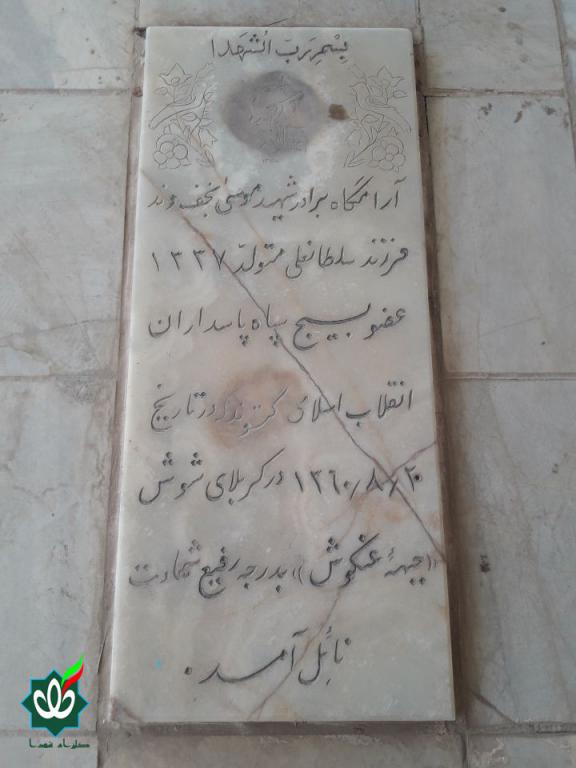 بسم رب الشهدا
آرامگاه برادر شهید موسی نجف وند
فرزند سلطانعلی متولد ۱۳۳۷
عضو بسیج سپاه پاسداران
انقلاب اسلامی گتوند که در تاریخ
۱۳۶۰/۸/۲۰ در کربلای شوش
«جبههٔ عنکوش» بدرجه رفیع شهادت
نائل آمد.
گلزار شهدا